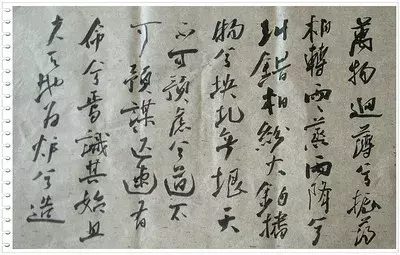 萬物迴薄兮振蕩
相轉雨蒸雨降兮
糾錯相紛大鈞播
物兮坱圠無垠天
不可預慮兮道不
可預謀遲速有
命兮焉識其始且
夫天地為炉兮造